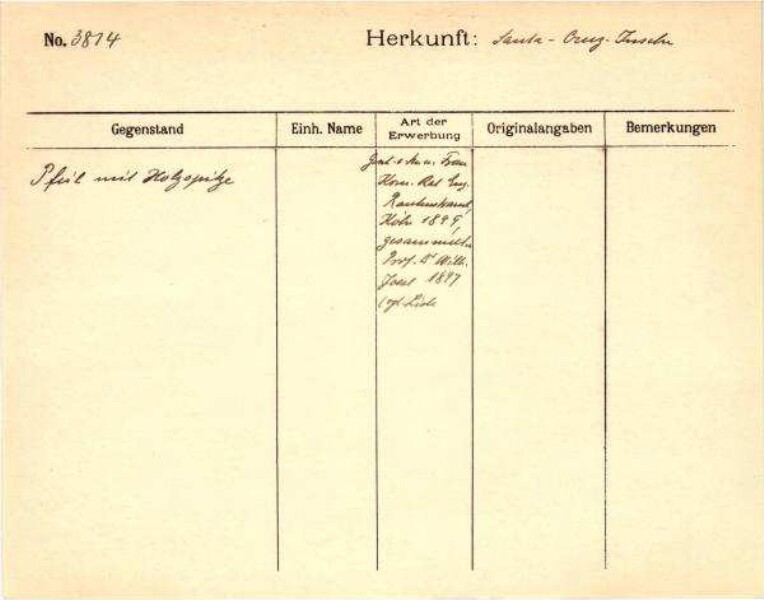 No. 3814
Herkunft: Santa-Cruz-Inseln
Gegenstand
Einh. Name
Art der Erwerbung
Originalangaben
Bemerkungen
Pfeil mit Holzspitze
Frau
Kom. Rat Eug.
Rautenstrauch,
Köln 1899,
gesammelt v.
Prof. Dr Wilh.
Joest 1897
Liste